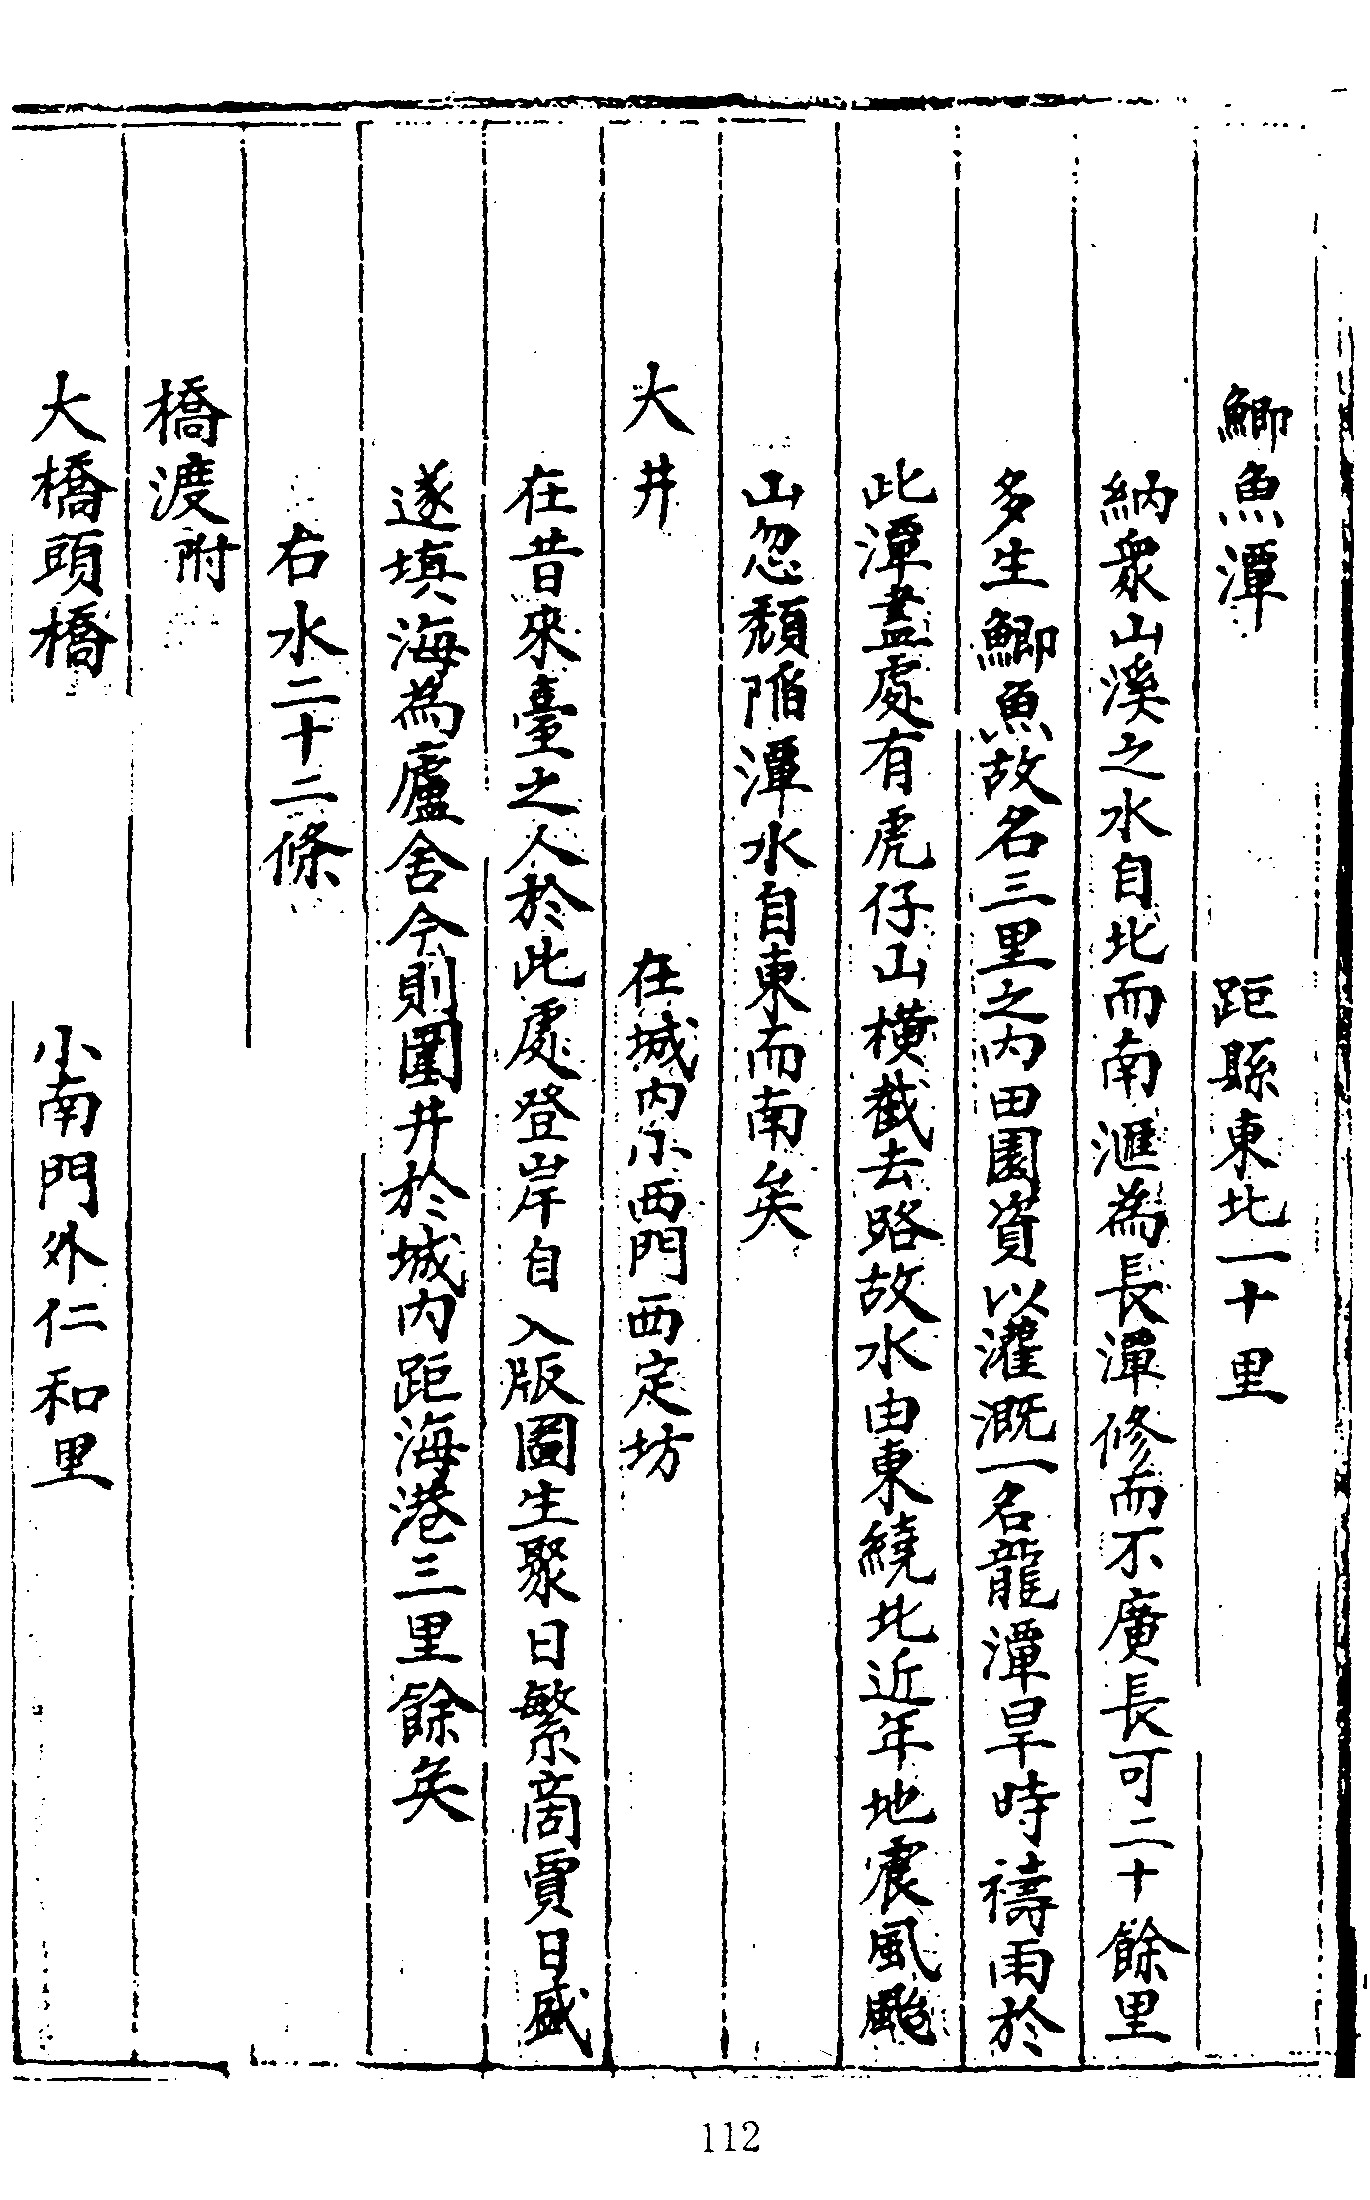 鯽魚潭　距縣東北一十里
納衆山溪之水自北而南滙為長潭修而不廣長可二十餘里
多生鯽魚故名三里之內田園資以灌溉一名龍潭旱時禱雨於
此潭盡處有虎仔山橫截去路故水由東繞北近年地震風颱
山忽頹陷潭水自東而南矣
大井　在城內小西門西定坊
在昔來臺之人於此處登岸自入版圖生聚日繁商賈日盛
遂填海為廬舍今則圍井於城內距海港三里餘矣
右水二十二條
橋渡附
大橋頭橋　小南門外仁和里
112